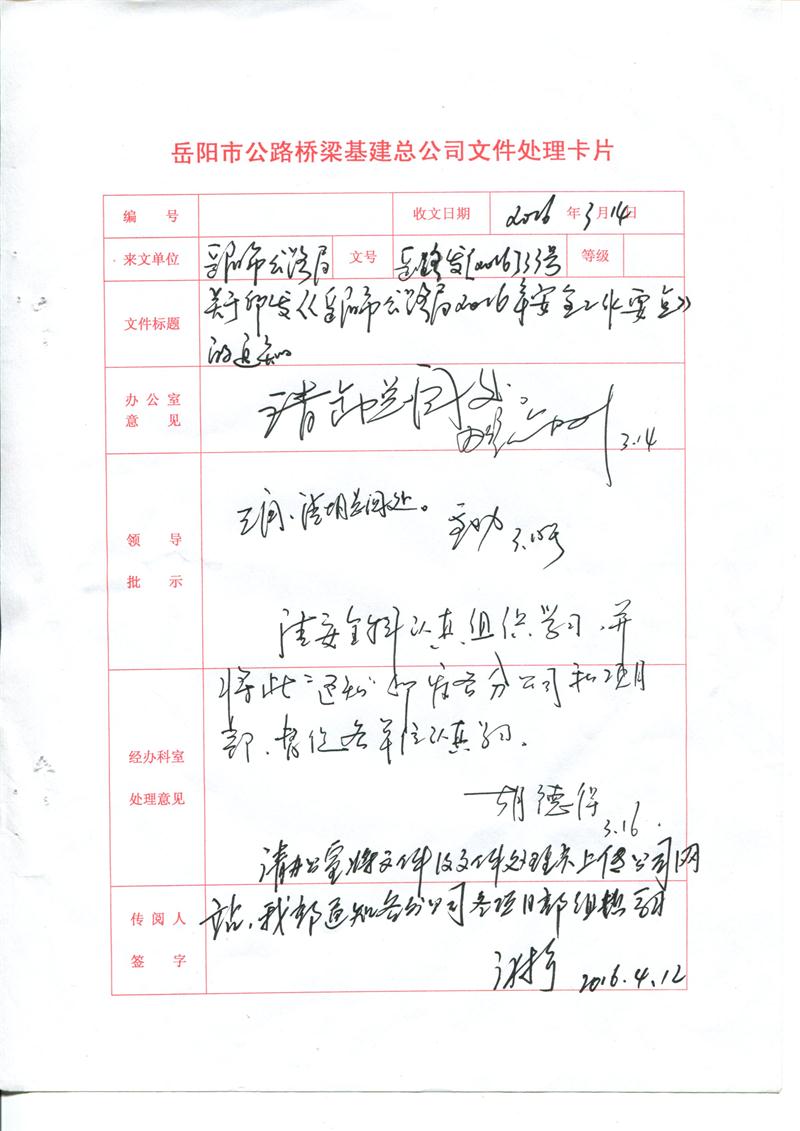 岳阳市公路桥梁基建总公司文件处理卡片
编 号 收文日期 2016 年 3 月 14 日
来文单位 岳阳市公路局 文号 岳路发[2016]33号 等级
文件标题 关于印发《岳阳市公路局2016年安全工作要点》
的通知
办公室
意 见 请 总阅处 3.14
领 导
批 示
阅、请胡总阅处。
3.15
请安全科认真组织学习,并
将此“通知”印发各分公司和项目
部,督促各单位认真学习。
经办科室
处理意见
胡德得
3.16.
请办公室将文件及文件处理卡上传公司网
站,我部通知各分公司各项目部组织学习
传阅人
签 字
2016.4.12